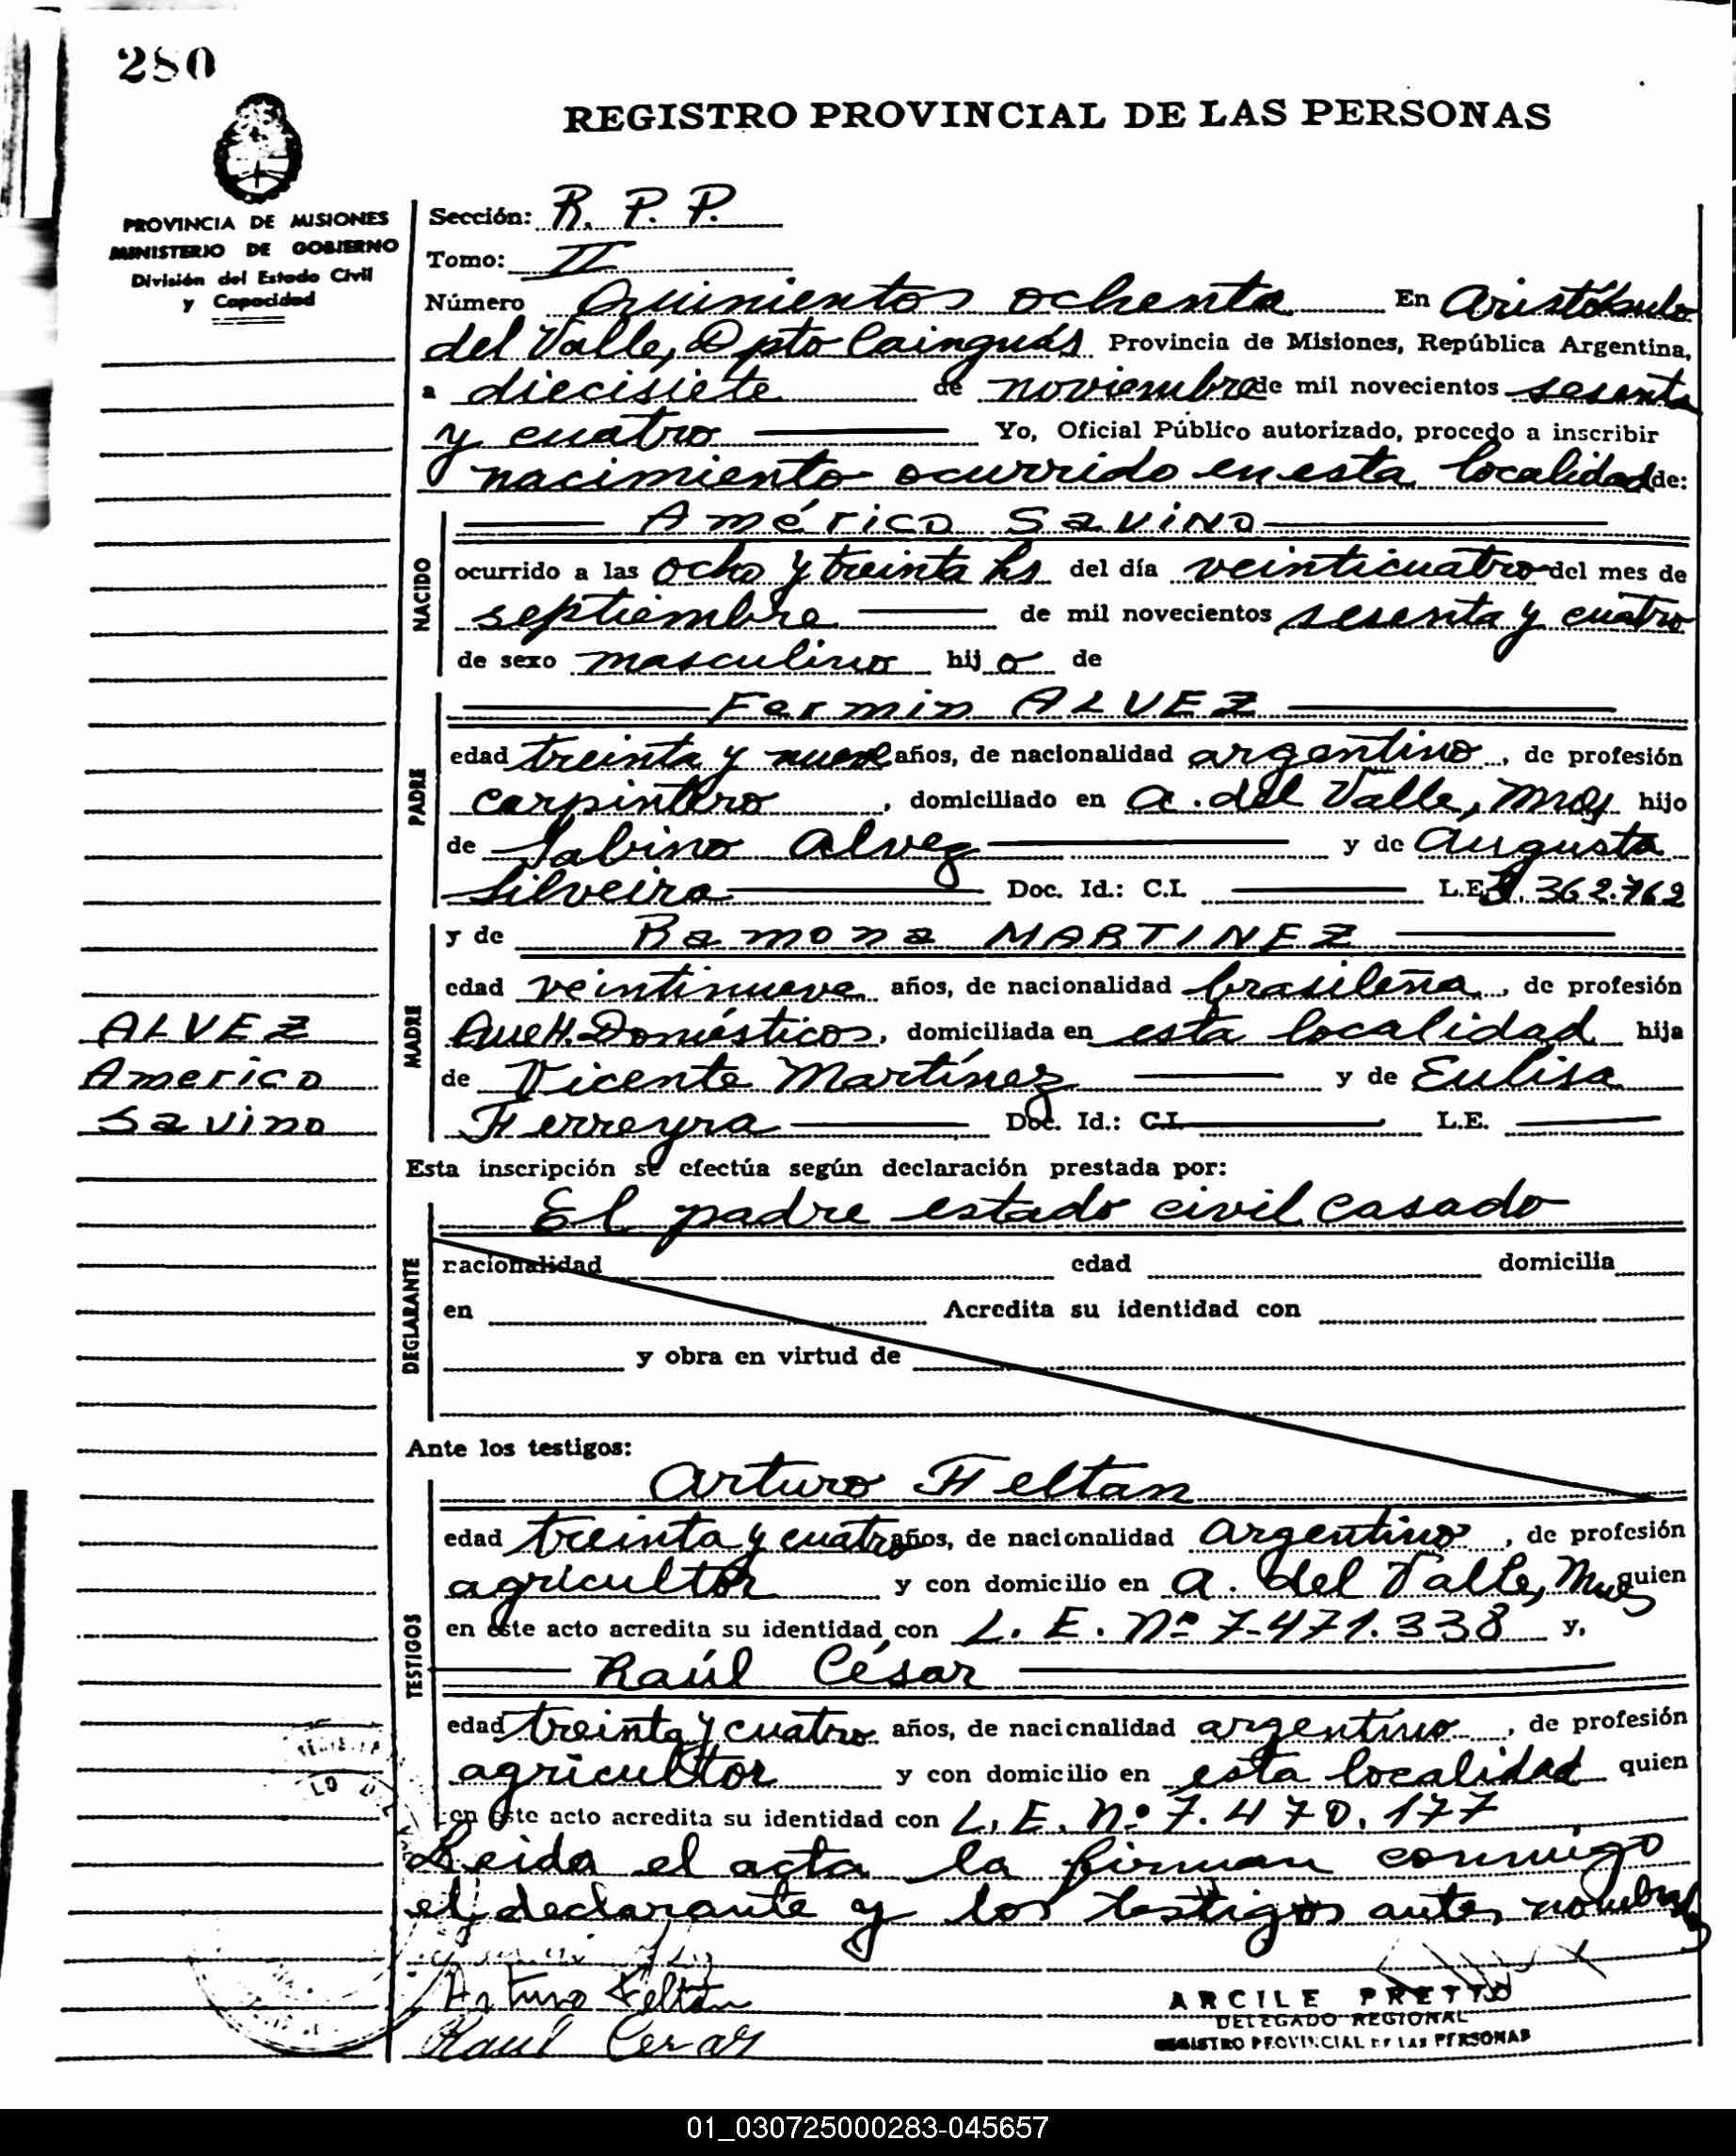 280
REGISTRO PROVINCIAL DE LAS PERSONAS
PROVINCIA DE MISIONES
MINISTERIO DE GOBIERNO
División del Estado Civil
y Capacidad
Sección: R. P. P.
Tomo: II
Número Quinientos ochenta En Aristóbulo
del Valle, Dpto Cainguás Provincia de Misiones, República Argentina,
a diecisiete de noviembre de mil novecientos sesenta
y cuatro Yo, Oficial Público autorizado, procedo a inscribir
nacimiento ocurrido en esta localidad de:
NACIDO
Américo Savino
ocurrido a las ocho y treinta hs del día veinticuatro del mes de
septiembre de mil novecientos sesenta y cuatro
de sexo masculino hijo de
PADRE
Fermin ALVEZ
edad treinta y nueve años, de nacionalidad argentino, de profesión
carpintero, domiciliado en A. del Valle, Mnes hijo
de Sabino Alvez y de Augusta
Silveira Doc. Id.: C.I. L.E. 362.762
MADRE
y de Ramona MARTINEZ
edad veintinueve años, de nacionalidad brasileña, de profesión
Queh. Domésticos, domiciliada en esta localidad hija
de Vicente Martínez y de Eulisa
Ferreyra Doc. Id.: C.I. L.E.
ALVEZ
Americo
Savino
Esta inscripción se efectúa según declaración prestada por:
DECLARANTE
El padre estado civil casado
nacionalidad edad domicilia
en Acredita su identidad con
y obra en virtud de
Ante los testigos:
TESTIGOS
Arturo Feltan
edad treinta y cuatro años, de nacionalidad argentino, de profesión
agricultor y con domicilio en A. del Valle, Mnes quien
en este acto acredita su identidad con L. E. Nº 7.471.338 y,
Raúl César
edad treinta y cuatro años, de nacionalidad argentino, de profesión
agricultor y con domicilio en esta localidad quien
en este acto acredita su identidad con L. E. Nº 7.470.177
Leida el acta la firman conmigo
el declarante y los testigos antes nombrados
Arturo Feltan
Raul Cesar
ARCILE PRETTO
DELEGADO REGIONAL
REGISTRO PROVINCIAL DE LAS PERSONAS
01_030725000283-045657